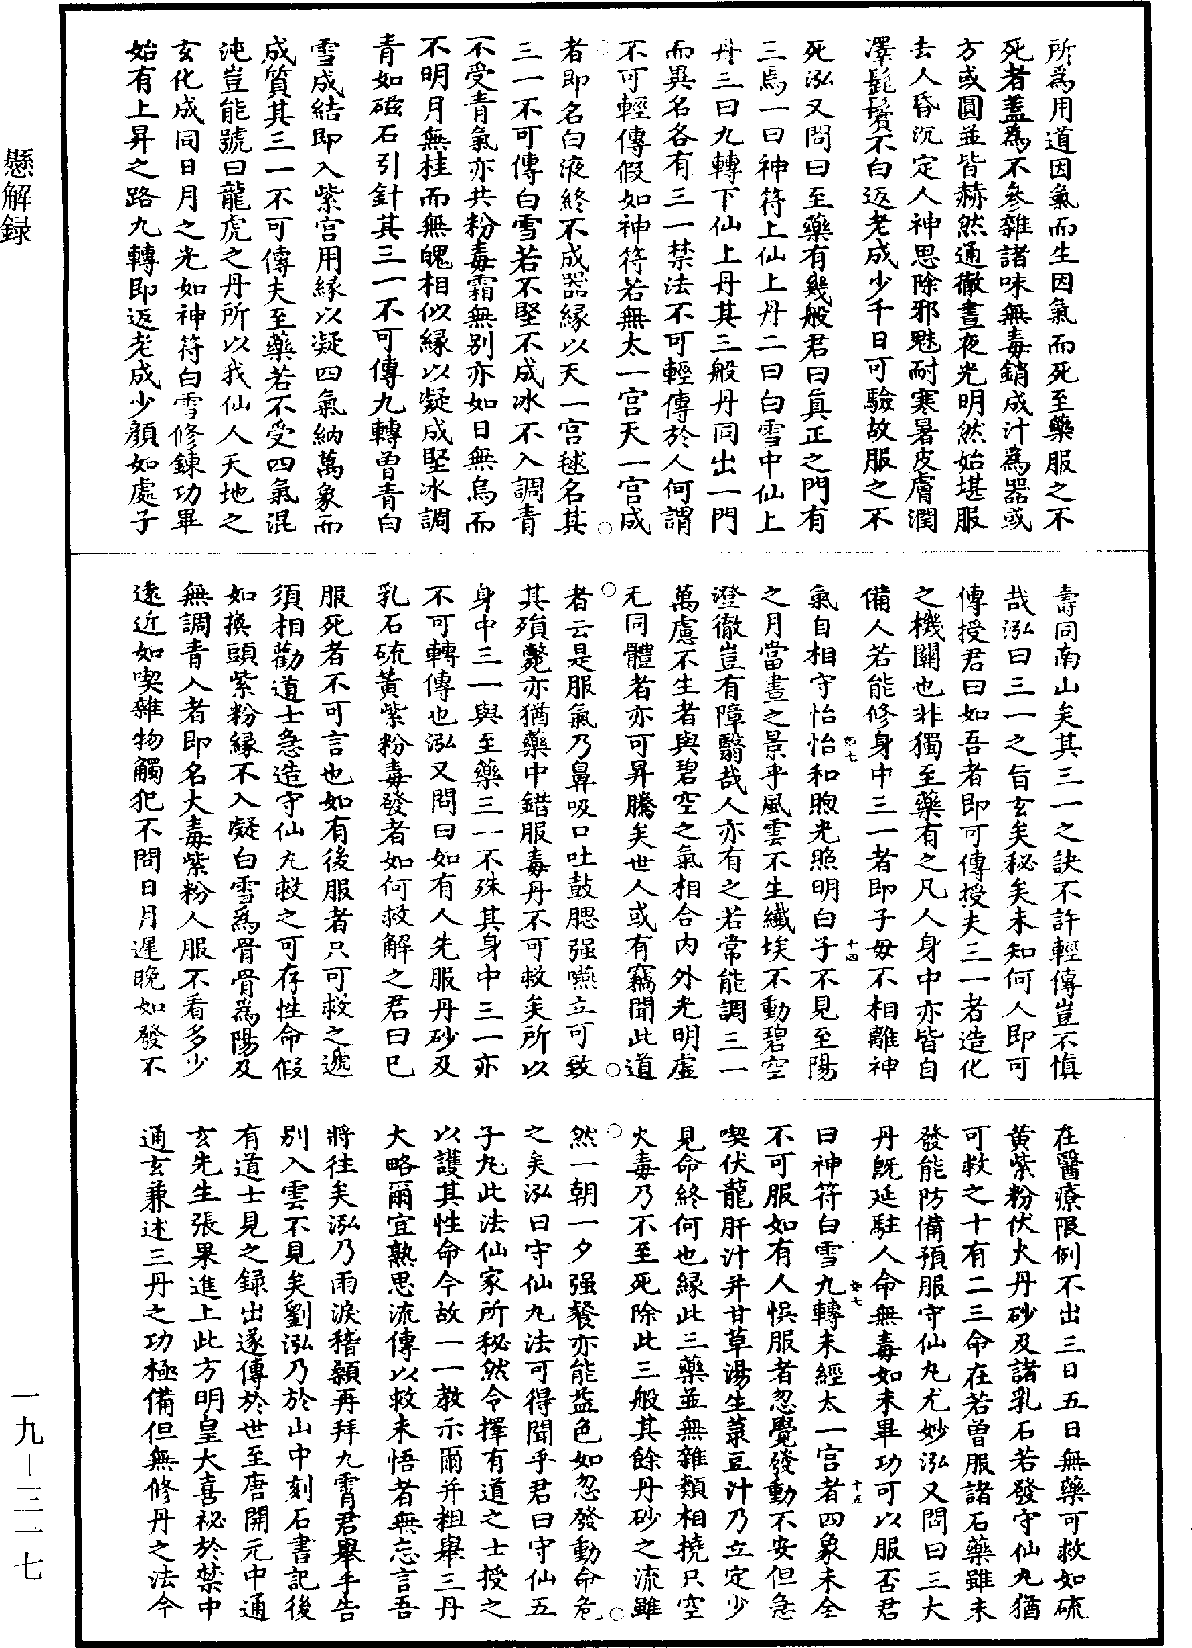 所為用道因氣而生因氣而死至藥服之不
死者蓋為不參雜諸味無毒銷成汁為器或
方或圓並皆赫然通徹晝夜光明然始堪服
去人昏沉定人神思除邪魅耐寒暑皮膚潤
澤髭鬢不白返老成少千日可驗故服之不
死泓又問曰至藥有幾般君曰真正之門有
三焉一曰神符上仙上丹二曰白雪中仙上
丹三曰九轉下仙上丹其三般丹同出一門
而異名各有三一禁法不可輕傳於人何謂
不可輕傳假如神符若無太一宮天一宮成
者即名白液終不成器緣以天一宮毬名其
三一不可傳白雪若不堅不成冰不入調青
不受青氣亦共粉毒霜無別亦如日無烏而
不明月無桂而無魄相似緣以凝成堅冰調
青如磁石引針其三一不可傳九轉曾青白
雪成結即入紫宮用緣以凝四氣納萬象而
成質其三一不可傳夫至藥若不受四氣混
沌豈能號曰龍虎之丹所以我仙人天地之
玄化成同日月之光如神符白雪修鍊功畢
始有上昇之路九轉即返老成少顏如處子
壽同南山矣其三一之訣不許輕傳豈不慎
哉泓曰三一之旨玄矣秘矣未知何人即可
傳授君曰如吾者即可傳授夫三一者造化
之機關也非獨至藥有之凡人身中亦皆自
備人若能修身中三一者即子母不相離神
氣自相守怡怡和煦光照明白子不見至陽
之月當晝之景乎風雲不生纖埃不動碧空
澄徹豈有障翳哉人亦有之若常能調三一
萬慮不生者與碧空之氣相合內外光明虛
无同體者亦可昇騰矣世人或有竊聞此道
者云是服氣乃鼻吸口吐鼓腮强嚥立可致
其殞斃亦猶藥中錯服毒丹不可救矣所以
身中三一與至藥三一不殊其身中三一亦
不可轉傳也泓又問曰如有人先服丹砂及
乳石硫黃紫粉毒發者如何救解之君曰已
服死者不可言也如有後服者只可救之遞
須相勸道士急造守仙丸救之可存性命假
如換頭紫粉緣不入凝白雪為骨骨為陽及
無調青入者即名大毒紫粉人服不看多少
遠近如喫雜物觸犯不問日月遲晚如發不
在醫療限例不出三日五日無藥可救如硫
黃紫粉伏火丹砂及諸乳石若發守仙丸猶
可救之十有二三命在若曾服諸石藥雖未
發能防備預服守仙丸尤妙泓又問曰三大
丹既延駐人命無毒如未畢功可以服否君
曰神符白雪九轉未經太一宮者四象未全
不可服如有人悞服者忽覺發動不安但急
喫伏龍肝汁并甘草湯生菉豆汁乃立定少
見命終何也緣此三藥並無雜類相撓只空
火毒乃不至死除此三般其餘丹砂之流雖
然一朝一夕强餐亦能益色如忽發動命危
之矣泓曰守仙九法可得聞乎君曰守仙五
子丸此法仙家所秘然令擇有道之士授之
以護其性命今故一一教示爾并粗舉三丹
大略爾宜熟思流傳以救未悟者無忘言吾
將往矣泓乃雨淚稽顙再拜九霄君舉手告
別入雲不見矣劉泓乃於山中刻石書記後
有道士見之録出遂傳於世至唐開元中通
玄先生張果進上此方明皇大喜祕於禁中
通玄兼述三丹之功極備但無修丹之法今
懸解録
一九—三一七